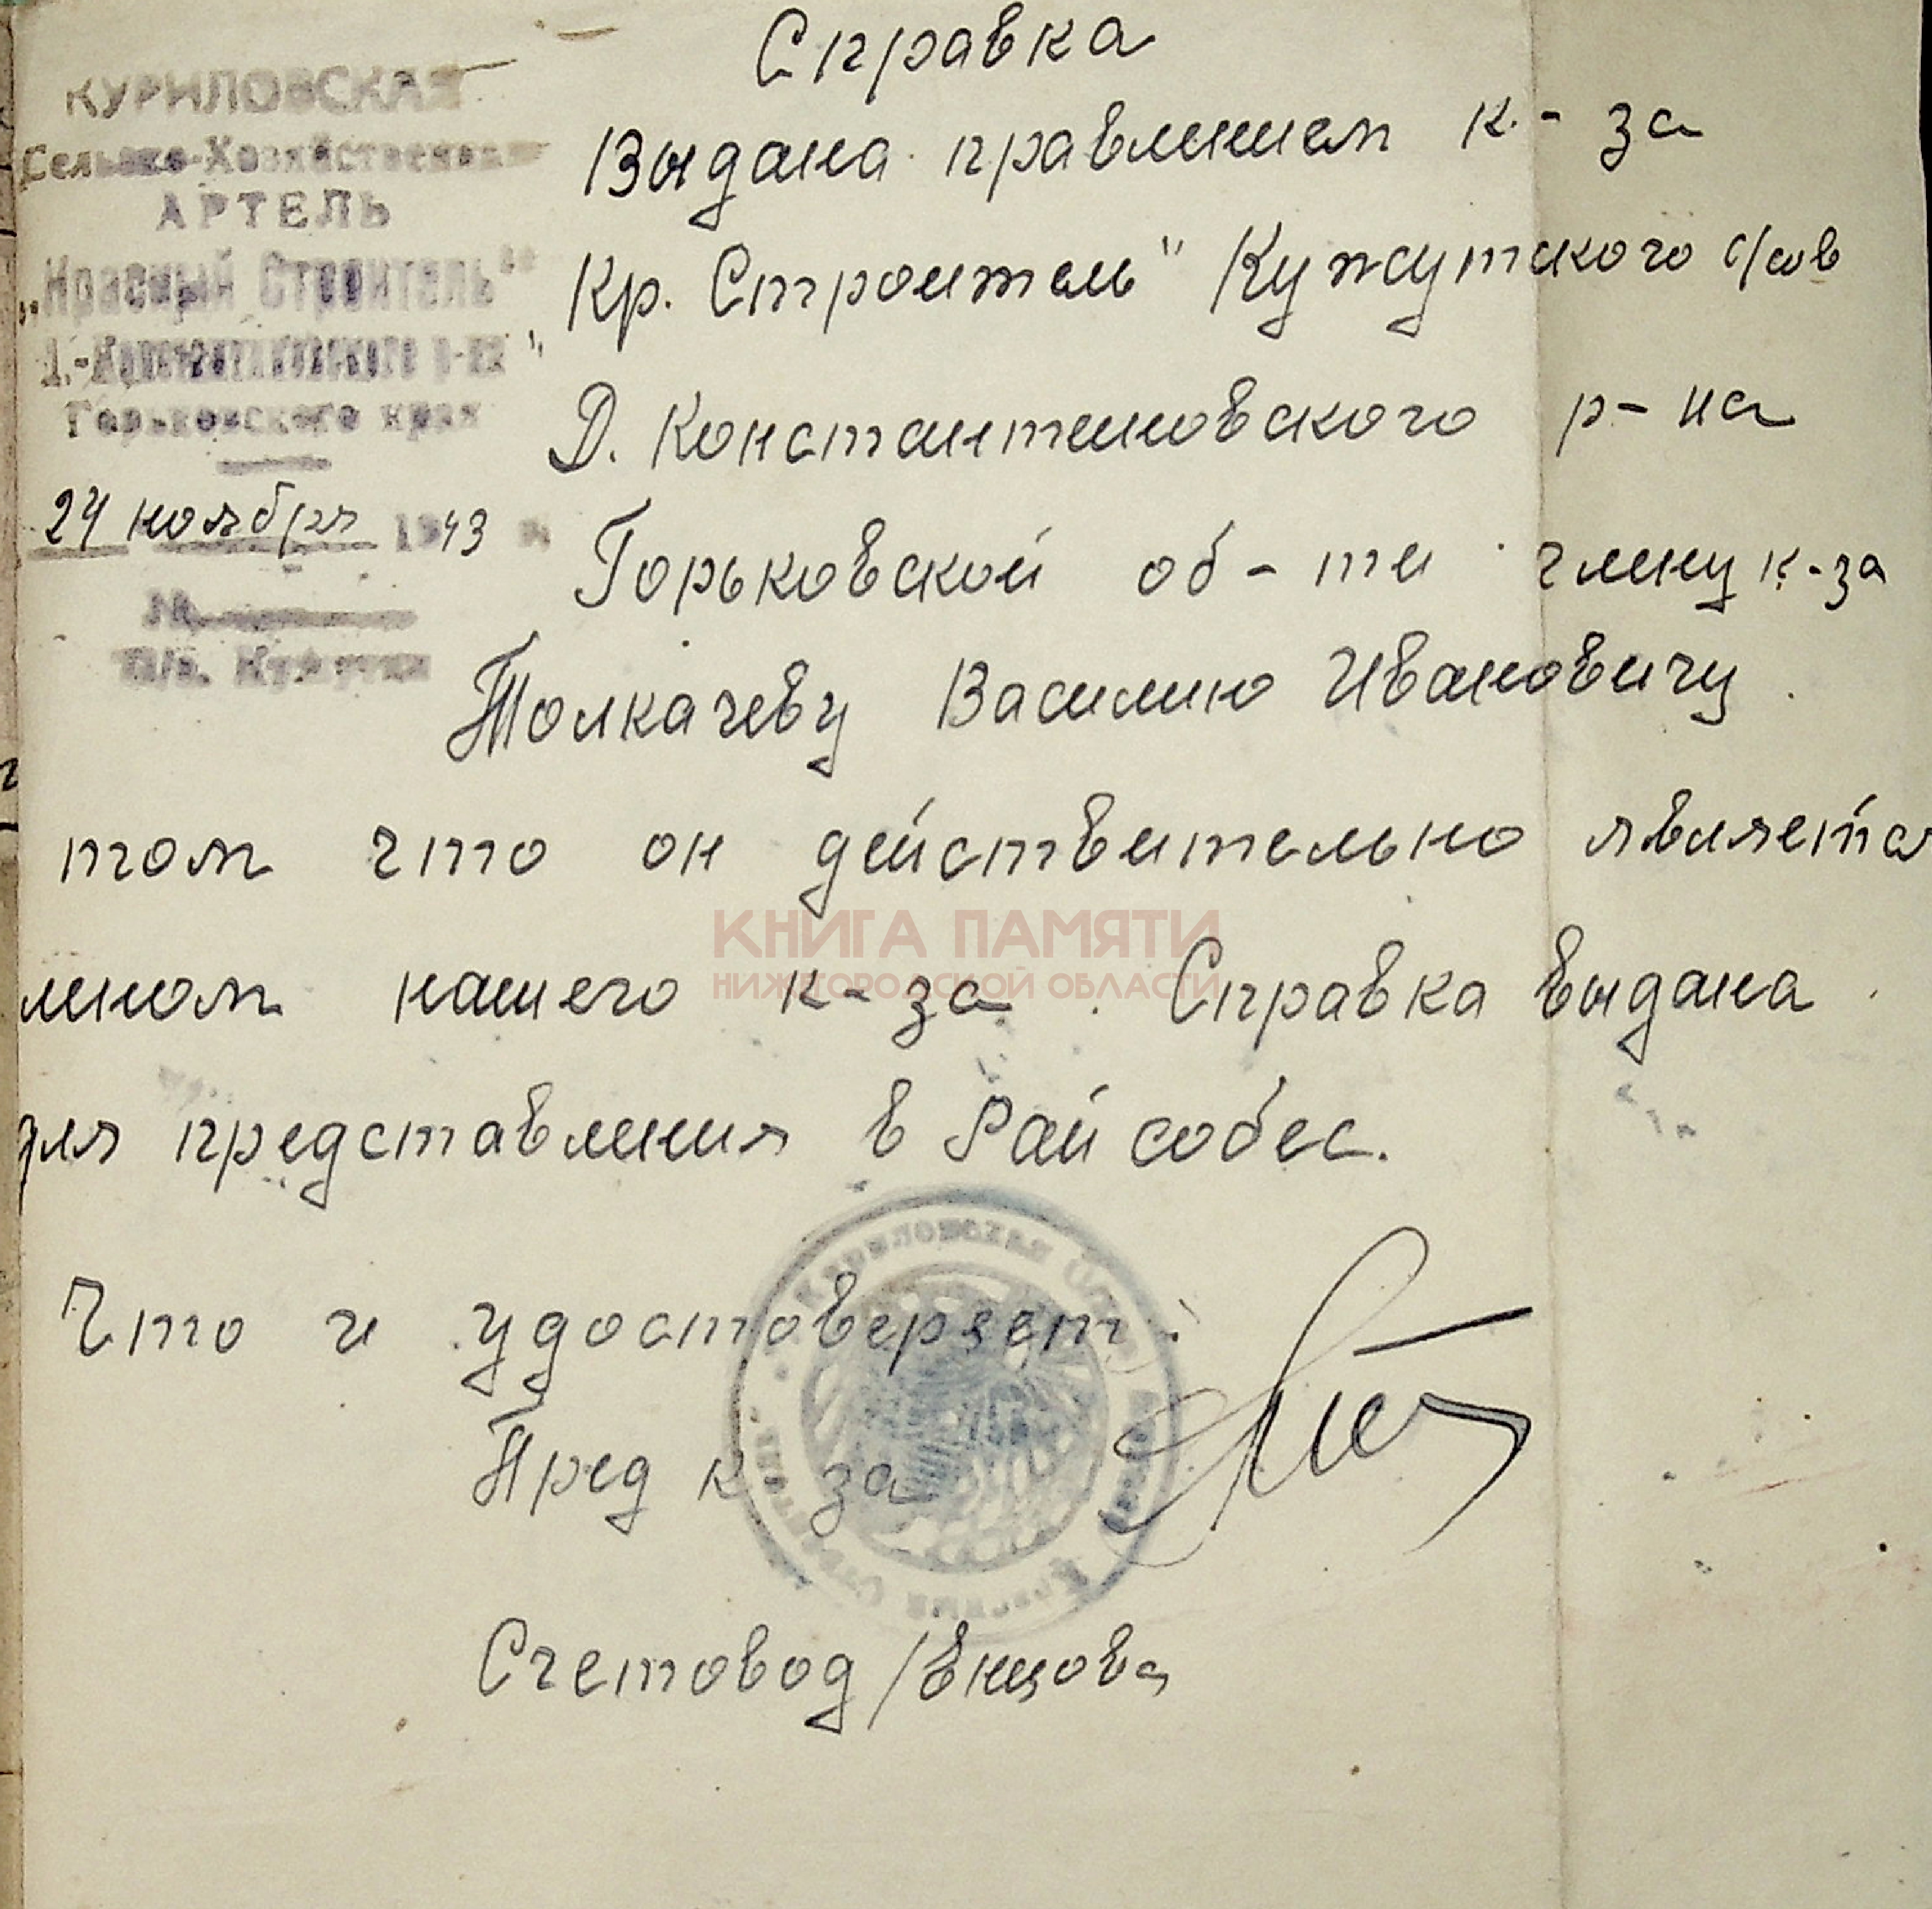 КУРИЛОВСКАЯ
Сельско-Хозяйственная
АРТЕЛЬ
„Красный Строитель"
Д.-Константиновского р-на
Горьковского края
24 ноября 1943
№
П/о. Кужутки
Справка
Выдана правлением к-за
„Кр. Строитель" Кужутского с/сов
Д. Константиновского р-на
Горьковской об-ти члену к-за
Толкачеву Василию Ивановичу
том что он действительно является
леном нашего к-за. Справка выдана
для представления в Райсобес.
КНИГА ПАМЯТИ
НИЖЕГОРОДСКОЙ ОБЛАСТИ
Что и удостоверяет.
Пред к-за
Счетовод /